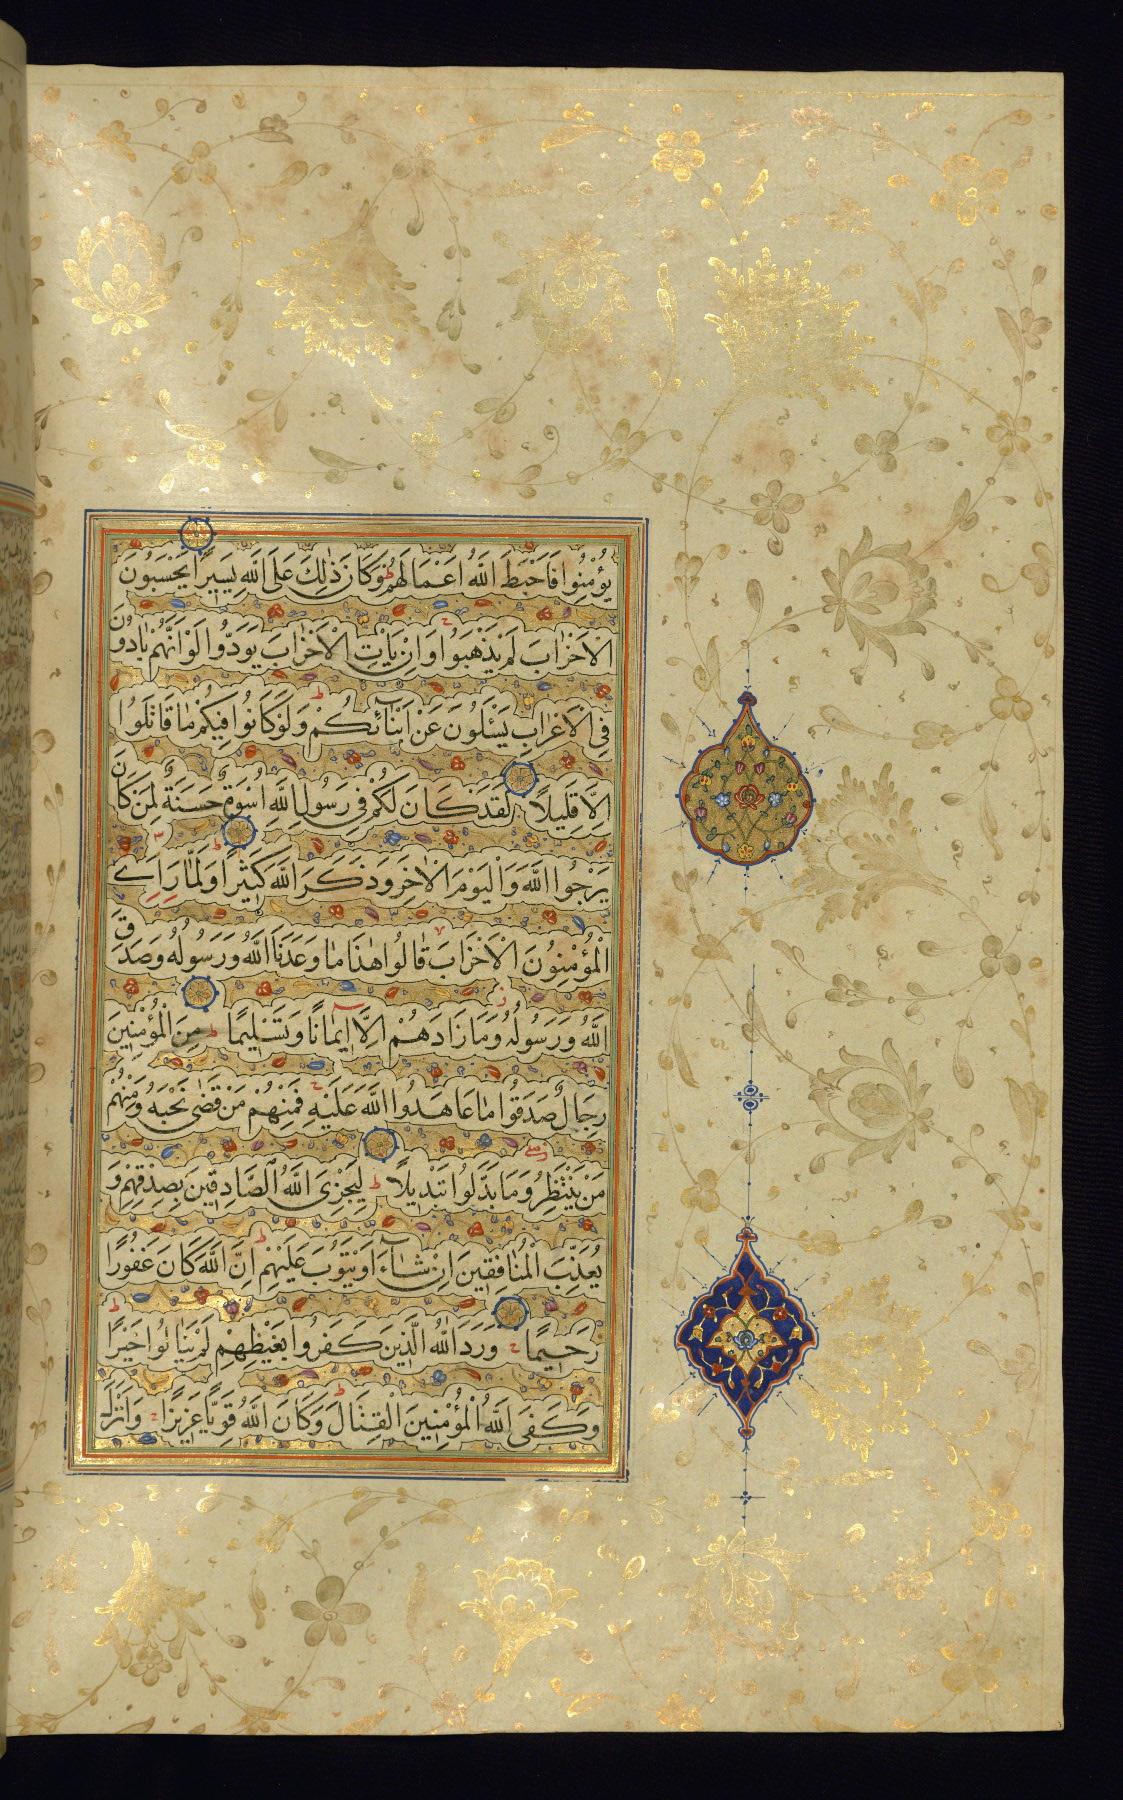 يُؤْمِنُوا فَاَحْبَطَ اللّٰهُ اَعْمَالَهُمْ ط وَكَانَ ذٰلِكَ عَلَى اللّٰهِ يَسِيرًا يَحْسَبُونَ
الْاَحْزَابَ لَمْ يَذْهَبُوا ج وَاِنْ يَاْتِ الْاَحْزَابُ يَوَدُّوا لَوْ اَنَّهُمْ بَادُونَ
فِى الْاَعْرَابِ يَسْئَلُونَ عَنْ اَنْبَآئِكُمْ ط وَلَوْ كَانُوا فِيكُمْ مَا قَاتَلُوا
اِلَّا قَلِيلًا لَقَدْ كَانَ لَكُمْ فِى رَسُولِ اللّٰهِ اُسْوَةٌ حَسَنَةٌ لِمَنْ كَانَ
يَرْجُوا اللّٰهَ وَالْيَوْمَ الْاٰخِرَ وَذَكَرَ اللّٰهَ كَثِيرًا ط وَلَمَّا رَاَى
الْمُؤْمِنُونَ الْاَحْزَابَ قَالُوا هٰذَا مَا وَعَدَنَا اللّٰهُ وَرَسُولُهُ وَصَدَقَ
اللّٰهُ وَرَسُولُهُ ز وَمَا زَادَهُمْ اِلَّا اِيمَانًا وَتَسْلِيمًا ط مِنَ الْمُؤْمِنِينَ
رِجَالٌ صَدَقُوا مَا عَاهَدُوا اللّٰهَ عَلَيْهِ ج فَمِنْهُمْ مَنْ قَضٰى نَحْبَهُ وَمِنْهُمْ
مَنْ يَنْتَظِرُ صلے وَمَا بَدَّلُوا تَبْدِيلًا ط لِيَجْزِىَ اللّٰهُ الصَّادِقِينَ بِصِدْقِهِمْ وَ
يُعَذِّبَ الْمُنَافِقِينَ اِنْ شَآءَ اَوْ يَتُوبَ عَلَيْهِمْ ط اِنَّ اللّٰهَ كَانَ غَفُورًا
رَحِيمًا ج وَرَدَّ اللّٰهُ الَّذِينَ كَفَرُوا بِغَيْظِهِمْ لَمْ يَنَالُوا خَيْرًا ط
وَكَفَى اللّٰهُ الْمُؤْمِنِينَ الْقِتَالَ ط وَكَانَ اللّٰهُ قَوِيًّا عَزِيزًا ج وَاَنْزَلَ